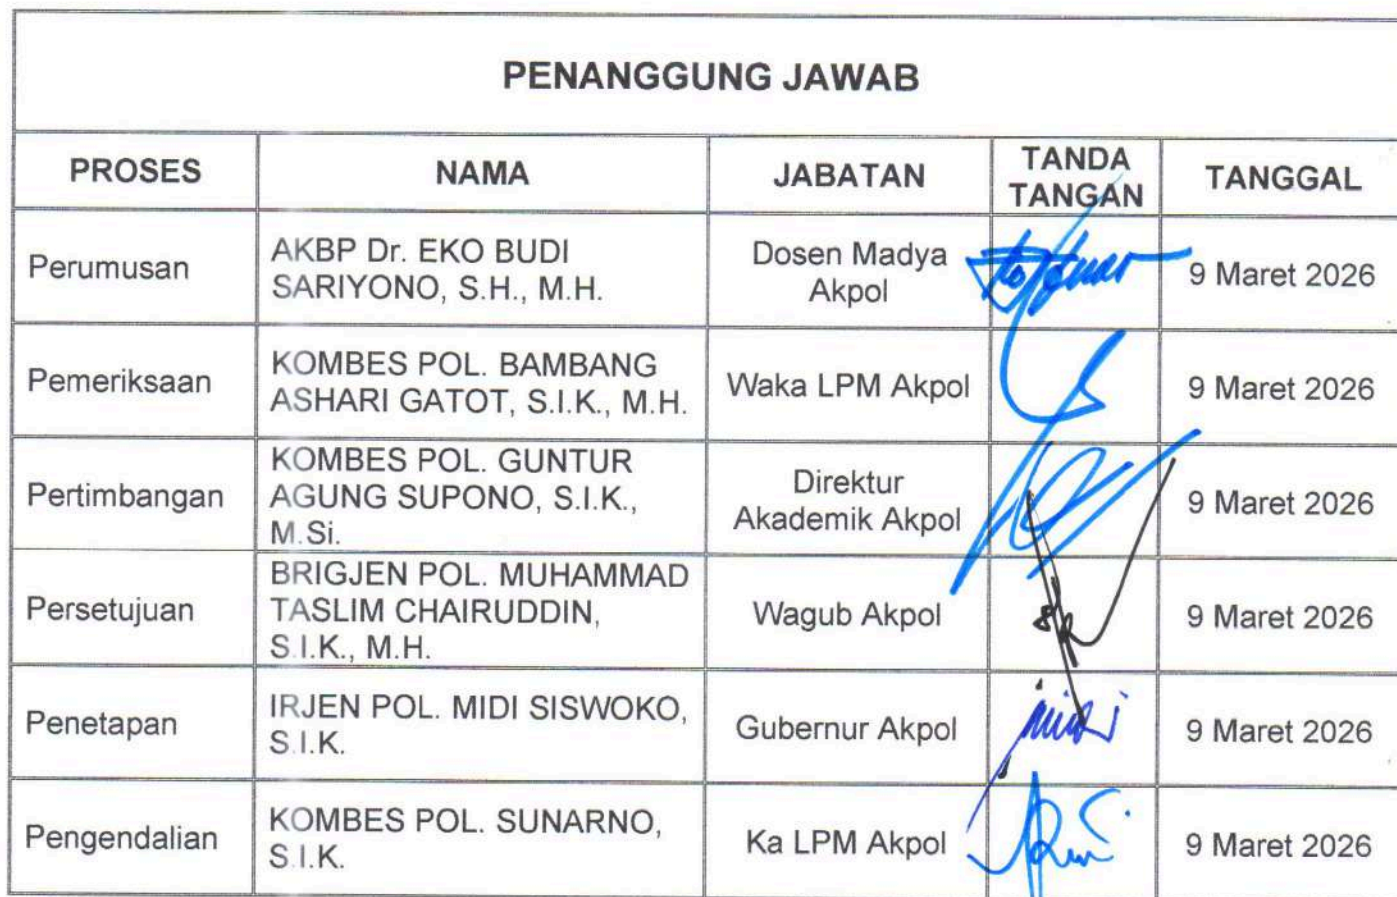 PENANGGUNG JAWAB
PROSES NAMA JABATAN TANDA TANGAN TANGGAL
Perumusan AKBP Dr. EKO BUDI SARIYONO, S.H., M.H. Dosen Madya Akpol 9 Maret 2026
Pemeriksaan KOMBES POL. BAMBANG ASHARI GATOT, S.I.K., M.H. Waka LPM Akpol 9 Maret 2026
Pertimbangan KOMBES POL. GUNTUR AGUNG SUPONO, S.I.K., M.Si. Direktur Akademik Akpol 9 Maret 2026
Persetujuan BRIGJEN POL. MUHAMMAD TASLIM CHAIRUDDIN, S.I.K., M.H. Wagub Akpol 9 Maret 2026
Penetapan IRJEN POL. MIDI SISWOKO, S.I.K. Gubernur Akpol 9 Maret 2026
Pengendalian KOMBES POL. SUNARNO, S.I.K. Ka LPM Akpol 9 Maret 2026